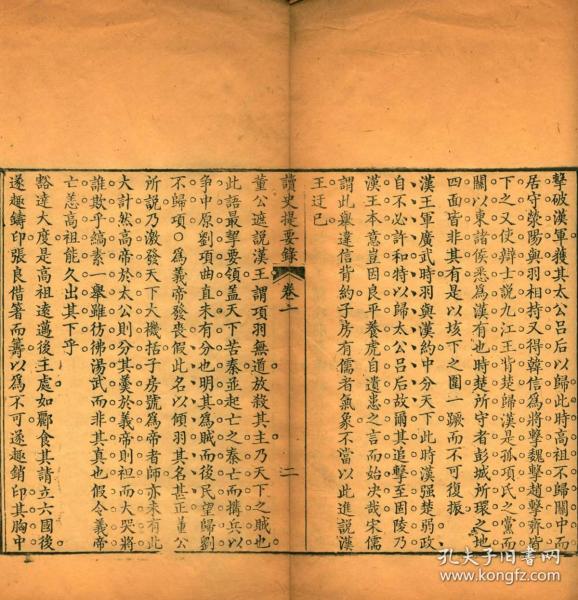 擊破漢軍獲其太公呂后以歸此時高祖不歸關中而
居守滎陽與羽相持又得韓信爲將擊魏擊趙擊齊皆
下之又使辯士說九江王背楚歸漢是孤項氏之黨而
關以東諸侯悉爲漢有也時楚所守者彭城所環之地
四面皆非其有是以垓下之圍一蹶而不可復振
漢王軍廣武時羽與漢約中分天下此時漢强楚弱政
自不必許和特以歸太公呂后故爾其追擊至固陵乃
漢王本意豈因良平養虎自遺患之言而始决哉宋儒
謂此舉違信背約子房有儒者氣象不當以此進說漢
王迂已
讀史提要錄
卷一
二
董公遮說漢王謂項羽無道放殺其主乃天下之賊也
此語最挈要領蓋天下苦秦並起亡之秦亡而搆兵以
爭中原劉項曲直未有分也明其爲賊而後民望歸劉
不歸項○爲義帝發喪假此名以傾羽其名甚正董公
所說乃激發天下大機括子房號爲帝者師亦未有此
大計然高帝於太公則分其羹於義帝則袒而大哭將
誰欺乎縞素一舉雖彷彿湯武而非其真也假令義帝
亡恙高祖能久出其下乎
豁達大度是高祖遠邁後王處如酈食其請立六國後
遂趣鑄印張良借箸而籌以爲不可遂趣銷印其胸中
孔夫子旧书网
www.kongfz.com